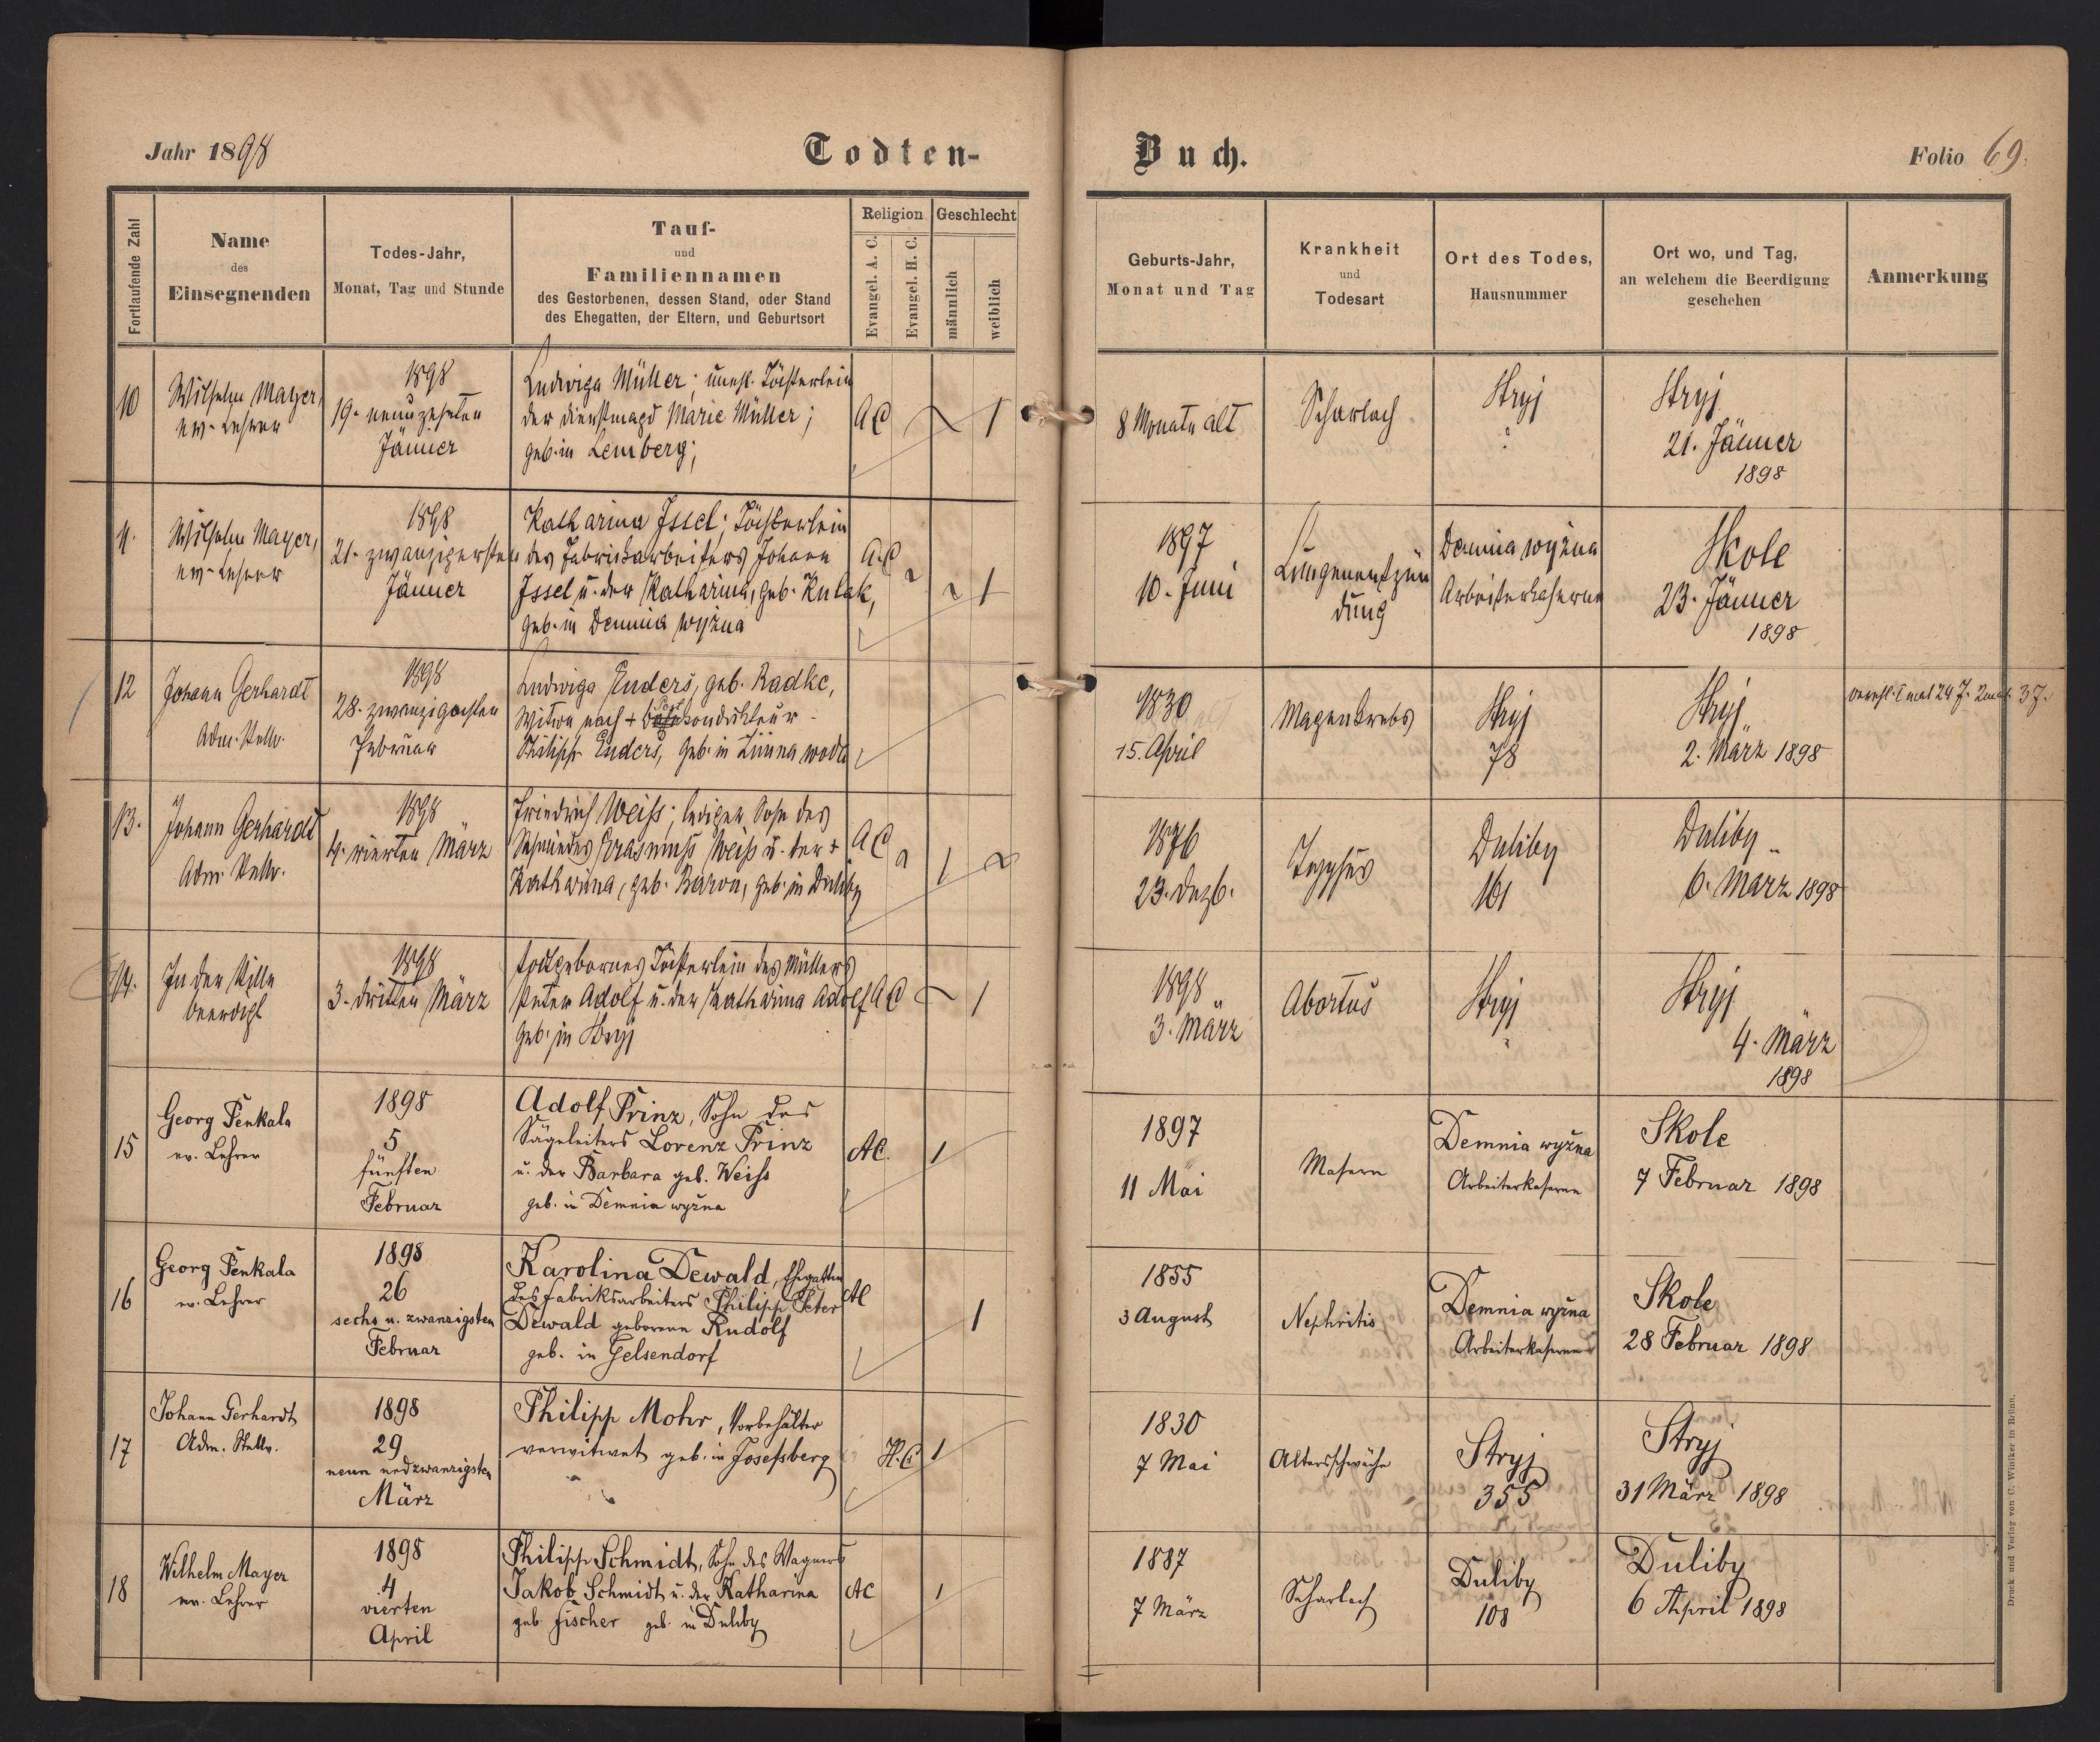 Jahr 1898
Todten-
Buch.
Folio 69.
Fortlaufende Zahl
Name
des
Einsegnenden
Todes-Jahr,
Monat, Tag und Stunde
Tauf-
und
Familiennamen
des Gestorbenen, dessen Stand, oder Stand
des Ehegatten, der Eltern, und Geburtsort
Religion
Evangel. A. C.
Evangel. H. C.
Geschlecht
männlich
weiblich
Geburts-Jahr,
Monat und Tag
Krankheit
und
Todesart
Ort des Todes,
Hausnummer
Ort wo, und Tag,
an welchem die Beerdigung
geschehen
Anmerkung
10
Wilhelm Mayer,
ev. Lehrer
1898
19. neunzehnten
Jänner
Ludwiga Müller; unehl. Töchterlein
der Dienstmagd Marie Müller;
geb. in Lemberg;
AC
1
8 Monate alt
Scharlach
Stryj
?
Stryj
21. Jänner
1898
11.
Wilhelm Mayer,
ev. Lehrer
1898
21. zwanzigersten
Jänner
Katharina Issel; Töchterlein
des Fabriksarbeiters Johann
Issel u. der Katharina, geb. Kulak,
geb. in Demnia wyżna
A.C
1
1897
10. Juni
Lungenentzün
dung
Demnia wyżna
Arbeiterkaserne
Skole
23. Jänner
1898
12
Johann Gerhardt
Adm. Stellv.
1898
28. zwanzigachten
Februar
Ludwiga Enders, geb. Radke,
Witwe nach + kondukteur
Philipp Enders, geb. in Zimna woda
1830
15. April
Magenkrebs
Stryj
78
Stryj
2. März 1898
verehl. 1 mal 24 J. 2 mal 3 J.
13.
Johann Gerhardt
Adm. Stellv.
1898
4. vierten März
Friedrich Weiß; lediger Sohn des
Schmiedes Erasmus Weiß u. der +
Katharina, geb. Baron, geb. in Duliby
AC
1
1876
23. Dezb.
Typhus
Duliby
161
Duliby
6. März 1898
14.
In der Stille
beerdigt
1898
3. dritten März
todtgebornes Töchterlein des Müllers
Peter Adolf u. der Katharina Adolf
geb. in Stryj
AC
1
1898
3. März
Abortus
Stryj
Stryj
4. März
1898
15
Georg Penkala
ev. Lehrer
1898
5
fünften
Februar
Adolf Prinz, Sohn des
Sägeleiters Lorenz Prinz
u. der Barbara geb. Weiss
geb. in Demnia wyżna
AC.
1
1897
11 Mai
Masern
Demnia wyżna
Arbeiterkaserne
Skole
7 Februar 1898
16
Georg Penkala
ev. Lehrer
1898
26
sechs u. zwanzigsten
Februar
Karolina Dewald, Ehegattin
des Fabriksarbeiters Philipp Peter
Dewald geborene Rudolf
geb. in Gelsendorf
AC
1
1855
3 August
Nephritis
Demnia wyżna
Arbeiterkaserne
Skole
28 Februar 1898
17
Johann Gerhardt
Adm. Stellv.
1898
29
neun und zwanzigsten
März
Philipp Mohr, Vorbehälter
verwitwet geb. in Josefsberg
H.C
1
1830
7 Mai
Altersschwäche
Stryj
355
Stryj
31 März 1898
18
Wilhelm Mayer
ev. Lehrer
1898
4
vierten
April
Philipp Schmidt, Sohn des Wagners
Jakob Schmidt u. der Katharina
geb. Fischer geb. in Duliby
AC
1
1887
7 März
Scharlach
Duliby
108
Duliby
6 April 1898
Druck und Verlag von C. Winiker in Brünn.